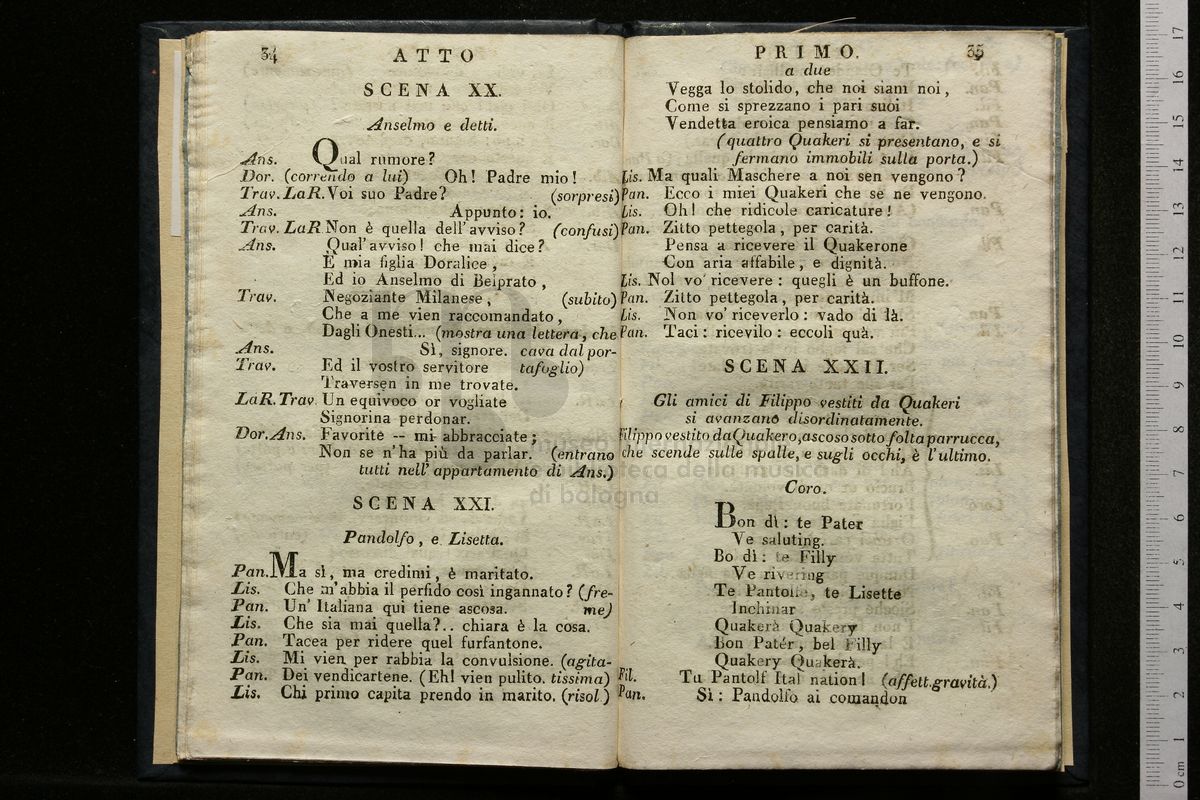 34
ATTO
SCENA XX.
Anselmo e detti.
Ans. Qual rumore?
Dor. (correndo a lui) Oh! Padre mio!
Trav. LaR. Voi suo Padre? (sorpresi)
Ans. Appunto: io.
Trav. LaR Non è quella dell'avviso? (confusi)
Ans. Qual'avviso! che mai dice?
È mia figlia Doralice,
Ed io Anselmo di Belprato,
Trav. Negoziante Milanese, (subito)
Che a me vien raccomandato,
Dagli Onesti... (mostra una lettera, che
Ans. Sì, signore. cava dal por-
Trav. Ed il vostro servitore tafoglio)
Traversen in me trovate.
LaR. Trav. Un equivoco or vogliate
Signorina perdonar.
Dor. Ans. Favorite -- mi abbracciate;
Non se n'ha più da parlar. (entrano
tutti nell'appartamento di Ans.)
SCENA XXI.
Pandolfo, e Lisetta.
Pan. Ma sì, ma credimi, è maritato.
Lis. Che m'abbia il perfido così ingannato? (fre-
Pan. Un' Italiana qui tiene ascosa. me)
Lis. Che sia mai quella?.. chiara è la cosa.
Pan. Tacea per ridere quel furfantone.
Lis. Mi vien per rabbia la convulsione. (agita-
Pan. Dei vendicartene. (Eh! vien pulito. tissima)
Lis. Chi primo capita prendo in marito. (risol.)
PRIMO.
35
a due
Vegga lo stolido, che noi siam noi,
Come si sprezzano i pari suoi
Vendetta eroica pensiamo a far.
(quattro Quakeri si presentano, e si
fermano immobili sulla porta.)
Lis. Ma quali Maschere a noi sen vengono?
Pan. Ecco i miei Quakeri che se ne vengono.
Lis. Oh! che ridicole caricature!
Pan. Zitto pettegola, per carità.
Pensa a ricevere il Quakerone
Con aria affabile, e dignità.
Lis. Nol vo' ricevere: quegli è un buffone.
Pan. Zitto pettegola, per carità.
Lis. Non vo' riceverlo: vado di là.
Pan. Taci: ricevilo: eccoli quà.
SCENA XXII.
Gli amici di Filippo vestiti da Quakeri
si avanzano disordinatamente.
Filippo vestito da Quakero, ascoso sotto folta parrucca,
che scende sulle spalle, e sugli occhi, è l'ultimo.
Coro.
Bon dì: te Pater
Ve saluting.
Bo dì: te Filly
Ve rivering
Te Pantolfe, te Lisette
Inchinar
Quakerà Quakery
Bon Patér, bel Filly
Quakery Quakerà.
Fil. Tu Pantolf Ital nation! (affett. gravità.)
Pan. Sì: Pandolfo ai comandon
museo
biblioteca della musica
di bologna
0 cm 1 2 3 4 5 6 7 8 9 10 11 12 13 14 15 16 17